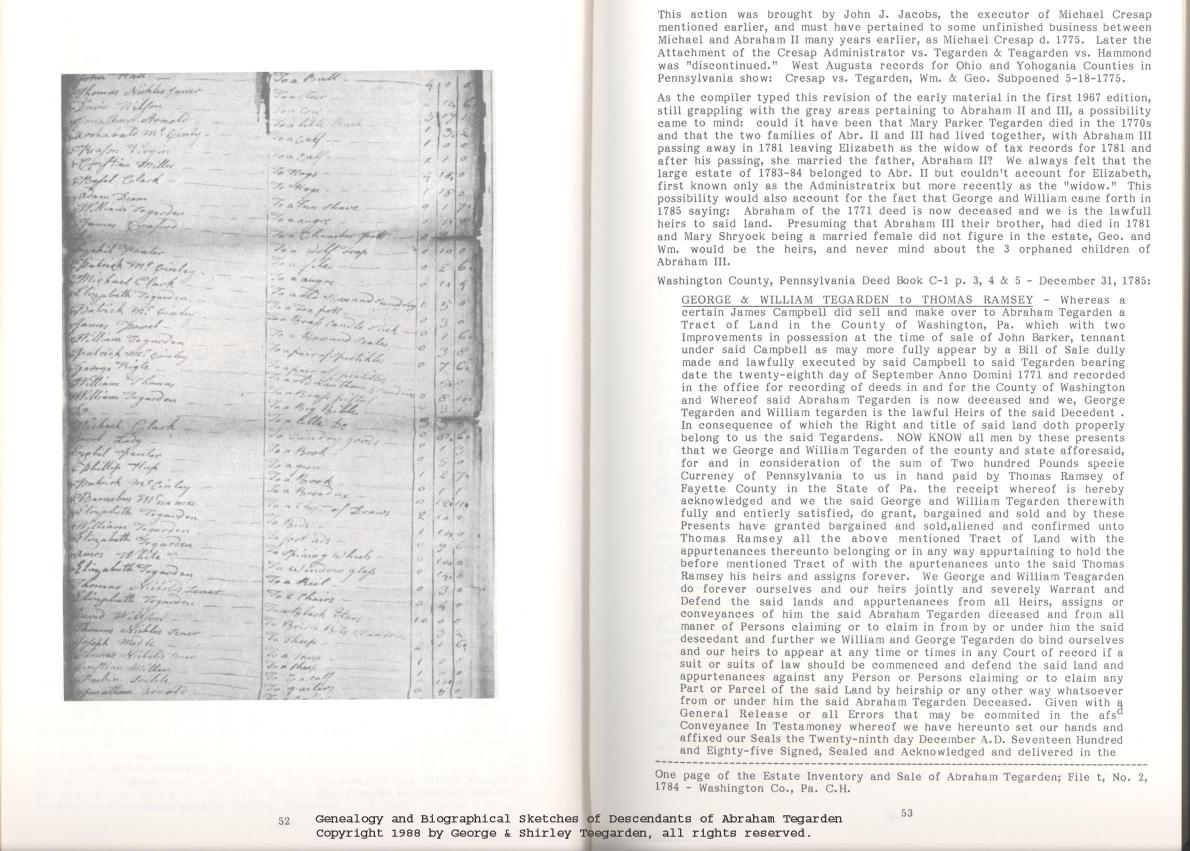 Thomas Nickles Juner
To a Bull
David Willson
To a Steer
Jonathan Arnold
To a Cow
Archabald Mc Cinly
To a little Bull
Reason Virgin
To a Calf
Christian Miller
To a Calf
Basel Clark
To Hogs
Adam Deem
To Hogs
William Tegarden
James Craford
To a augre
To a Chamber pott
To a Wolf trap
Patrick Mc Cinley
To a file
Michael Clark
To a augre
Elizabeth Tegarden
Patrick Mc Cinly
To a Tea pott
James
To a Brass Candle Stick
William Tegarden
Patrick Mc Cinley
George
William Thomas
William Tegarden
Do
To a Big Bible
Michael Clark
To a little Do
To Sundry goods
To a Book
Phillip
To a gun
Patrick Mc Cinley
To a Book
Barnebus Mc namee
To a Broad ax
Elizabeth Tegarden
William Tegarden
To Beds
Elizabeth Tegarden
Amos White
To Spining Whels
Elizabeth Tegarden
To Window glass
Thomas Nichols Juner
To a Reel
Elizabeth Tegarden
To 2 Chairs
David Willson
To a Black Hors
Thomas Nickles Juner
Joseph
To Sheep
Thomas Nichols Juner
To a Sheep
Cristian Miller
To Sheep
To a Calf
Jonathan Arnold
52
This action was brought by John J. Jacobs, the executor of Michael Cresap
mentioned earlier, and must have pertained to some unfinished business between
Michael and Abraham II many years earlier, as Michael Cresap d. 1775. Later the
Attachment of the Cresap Administrator vs. Tegarden & Teagarden vs. Hammond
was "discontinued." West Augusta records for Ohio and Yohogania Counties in
Pennsylvania show: Cresap vs. Tegarden, Wm. & Geo. Subpoened 5-18-1775.
As the compiler typed this revision of the early material in the first 1967 edition,
still grappling with the gray areas pertaining to Abraham II and III, a possibility
came to mind: could it have been that Mary Parker Tegarden died in the 1770s
and that the two families of Abr. II and III had lived together, with Abraham III
passing away in 1781 leaving Elizabeth as the widow of tax records for 1781 and
after his passing, she married the father, Abraham II? We always felt that the
large estate of 1783-84 belonged to Abr. II but couldn't account for Elizabeth,
first known only as the Administratrix but more recently as the "widow." This
possibility would also account for the fact that George and William came forth in
1785 saying: Abraham of the 1771 deed is now deceased and we is the lawfull
heirs to said land. Presuming that Abraham III their brother, had died in 1781
and Mary Shryock being a married female did not figure in the estate, Geo. and
Wm. would be the heirs, and never mind about the 3 orphaned children of
Abraham III.
Washington County, Pennsylvania Deed Book C-1 p. 3, 4 & 5 - December 31, 1785:
GEORGE & WILLIAM TEGARDEN to THOMAS RAMSEY - Whereas a
certain James Campbell did sell and make over to Abraham Tegarden a
Tract of Land in the County of Washington, Pa. which with two
Improvements in possession at the time of sale of John Barker, tennant
under said Campbell as may more fully appear by a Bill of Sale dully
made and lawfully executed by said Campbell to said Tegarden bearing
date the twenty-eighth day of September Anno Domini 1771 and recorded
in the office for recording of deeds in and for the County of Washington
and Whereof said Abraham Tegarden is now deceased and we, George
Tegarden and William tegarden is the lawful Heirs of the said Decedent .
In consequence of which the Right and title of said land doth properly
belong to us the said Tegardens. NOW KNOW all men by these presents
that we George and William Tegarden of the county and state afforesaid,
for and in consideration of the sum of Two hundred Pounds specie
Currency of Pennsylvania to us in hand paid by Thomas Ramsey of
Fayette County in the State of Pa. the receipt whereof is hereby
acknowledged and we the said George and William Tegarden therewith
fully and entierly satisfied, do grant, bargained and sold and by these
Presents have granted bargained and sold,aliened and confirmed unto
Thomas Ramsey all the above mentioned Tract of Land with the
appurtenances thereunto belonging or in any way appurtaining to hold the
before mentioned Tract of with the apurtenances unto the said Thomas
Ramsey his heirs and assigns forever. We George and William Teagarden
do forever ourselves and our heirs jointly and severely Warrant and
Defend the said lands and appurtenances from all Heirs, assigns or
conveyances of him the said Abraham Tegarden diceased and from all
maner of Persons claiming or to claim in from by or under him the said
descedant and further we William and George Tegarden do bind ourselves
and our heirs to appear at any time or times in any Court of record if a
suit or suits of law should be commenced and defend the said land and
appurtenances against any Person or Persons claiming or to claim any
Part or Parcel of the said Land by heirship or any other way whatsoever
from or under him the said Abraham Tegarden Deceased. Given with a
General Release or all Errors that may be commited in the afsd
Conveyance In Testamoney whereof we have hereunto set our hands and
affixed our Seals the Twenty-ninth day December A.D. Seventeen Hundred
and Eighty-five Signed, Sealed and Acknowledged and delivered in the
One page of the Estate Inventory and Sale of Abraham Tegarden; File t, No. 2,
1784 - Washington Co., Pa. C.H.
53
Genealogy and Biographical Sketches of Descendants of Abraham Tegarden
Copyright 1988 by George & Shirley Teegarden, all rights reserved.